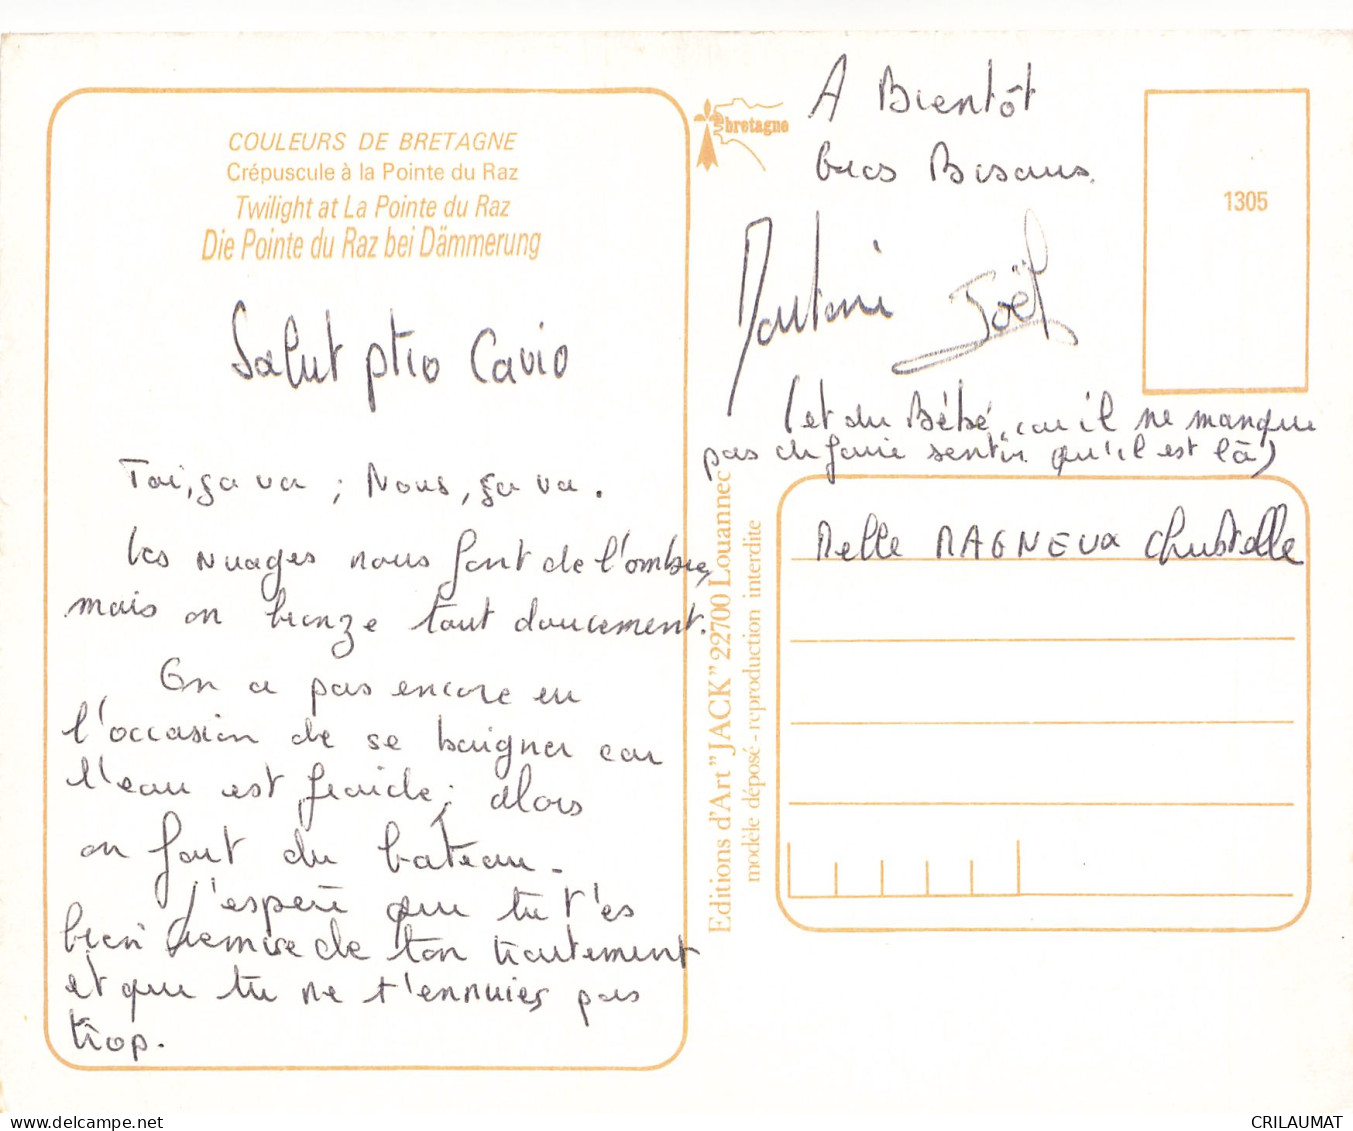 COULEURS DE BRETAGNE
Crépuscule à la Pointe du Raz
Twilight at La Pointe du Raz
Die Pointe du Raz bei Dämmerung
Salut ptio Cavio
Toi, ça va ; Nous, ça va.
Les nuages nous font de l'ombre,
mais on bronze tout doucement.
On a pas encore eu
l'occasion de se baigner car
l'eau est fraîche ; alors
on fait du bateau.
J'espère que tu t'es
bien remise de ton traitement
et que tu ne t'ennuies pas
trop.
bretagne
A Bientôt
Gros Bisous.
Joël
(et du Bébé, car il ne manque
pas de faire sentir qu'il est là)
1305
Editions d'Art "JACK" 22700 Louannec
modèle déposé - reproduction interdite
Melle MAGNEUX Christelle
CRILAUMAT